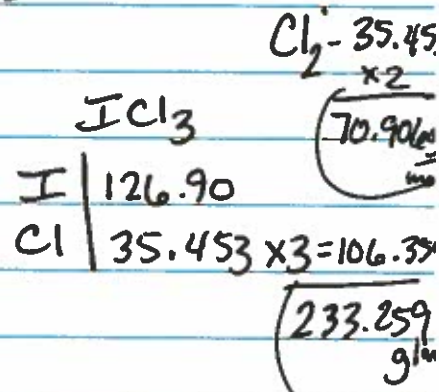 Cl2 - 35.45
x2
70.906
ICl3
I | 126.90
Cl | 35.453 x3 = 106.35
233.259
g/m